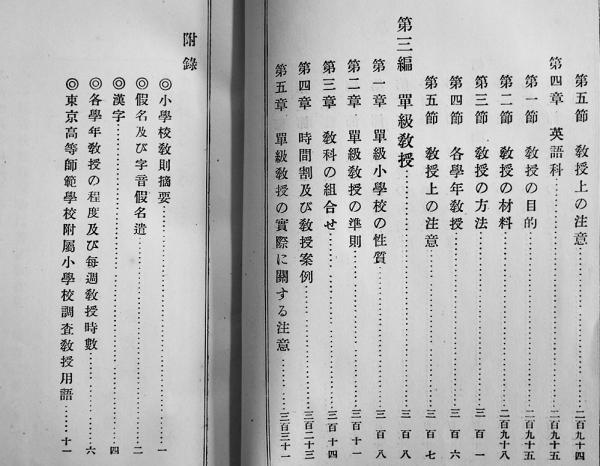 第五節　教授上の注意……二百九十四
第四章　英語科……二百九十五
第一節　教授の目的……二百九十五
第二節　教授の材料……二百九十八
第三節　教授の方法……三百一
第四節　各學年教授……三百六
第五節　教授上の注意……三百七
第三編　單級教授……三百八
第一章　單級小學校の性質……三百八
第二章　單級教授の準則……三百十一
第三章　教科の組合せ……三百十四
第四章　時間割及び教授案例……三百二十三
第五章　單級教授の實際に關する注意……三百三十一
附錄
◎小學校教則摘要……一
◎假名及び字音假名遣……二
◎漢字……四
◎各學年教授の程度及び每週教授時數……六
◎東京高等師範學校附屬小學校調查教授用語……十一